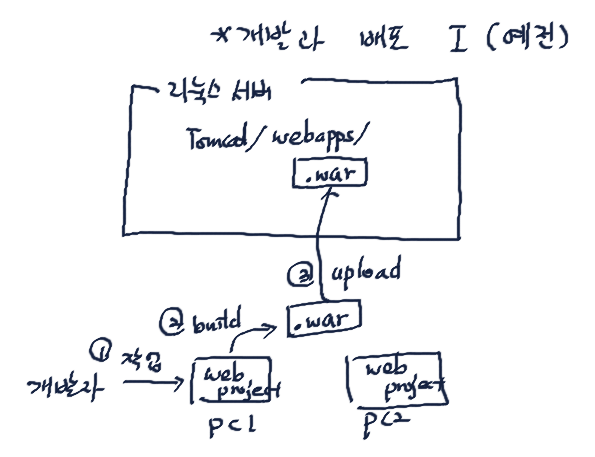 *개발과 배포 I (예전)
리눅스 서버
Tomcat/webapps/
.war
③ upload
② build
.war
① 작업
개발자
web project
PC1
web project
PC2